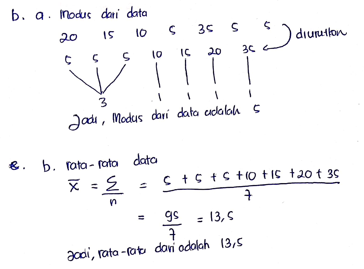 b. a. Modus dari data
20 15 10 5 35 5 5
diurutkan
5 5 5 10 15 20 35
3 1 1 1 1
Jadi, Modus dari data adalah 5
b. rata-rata data
x̄ = Σ/n = 5 + 5 + 5 + 10 + 15 + 20 + 35 / 7
= 95/7 = 13,5
Jadi, rata-rata dari adalah 13,5